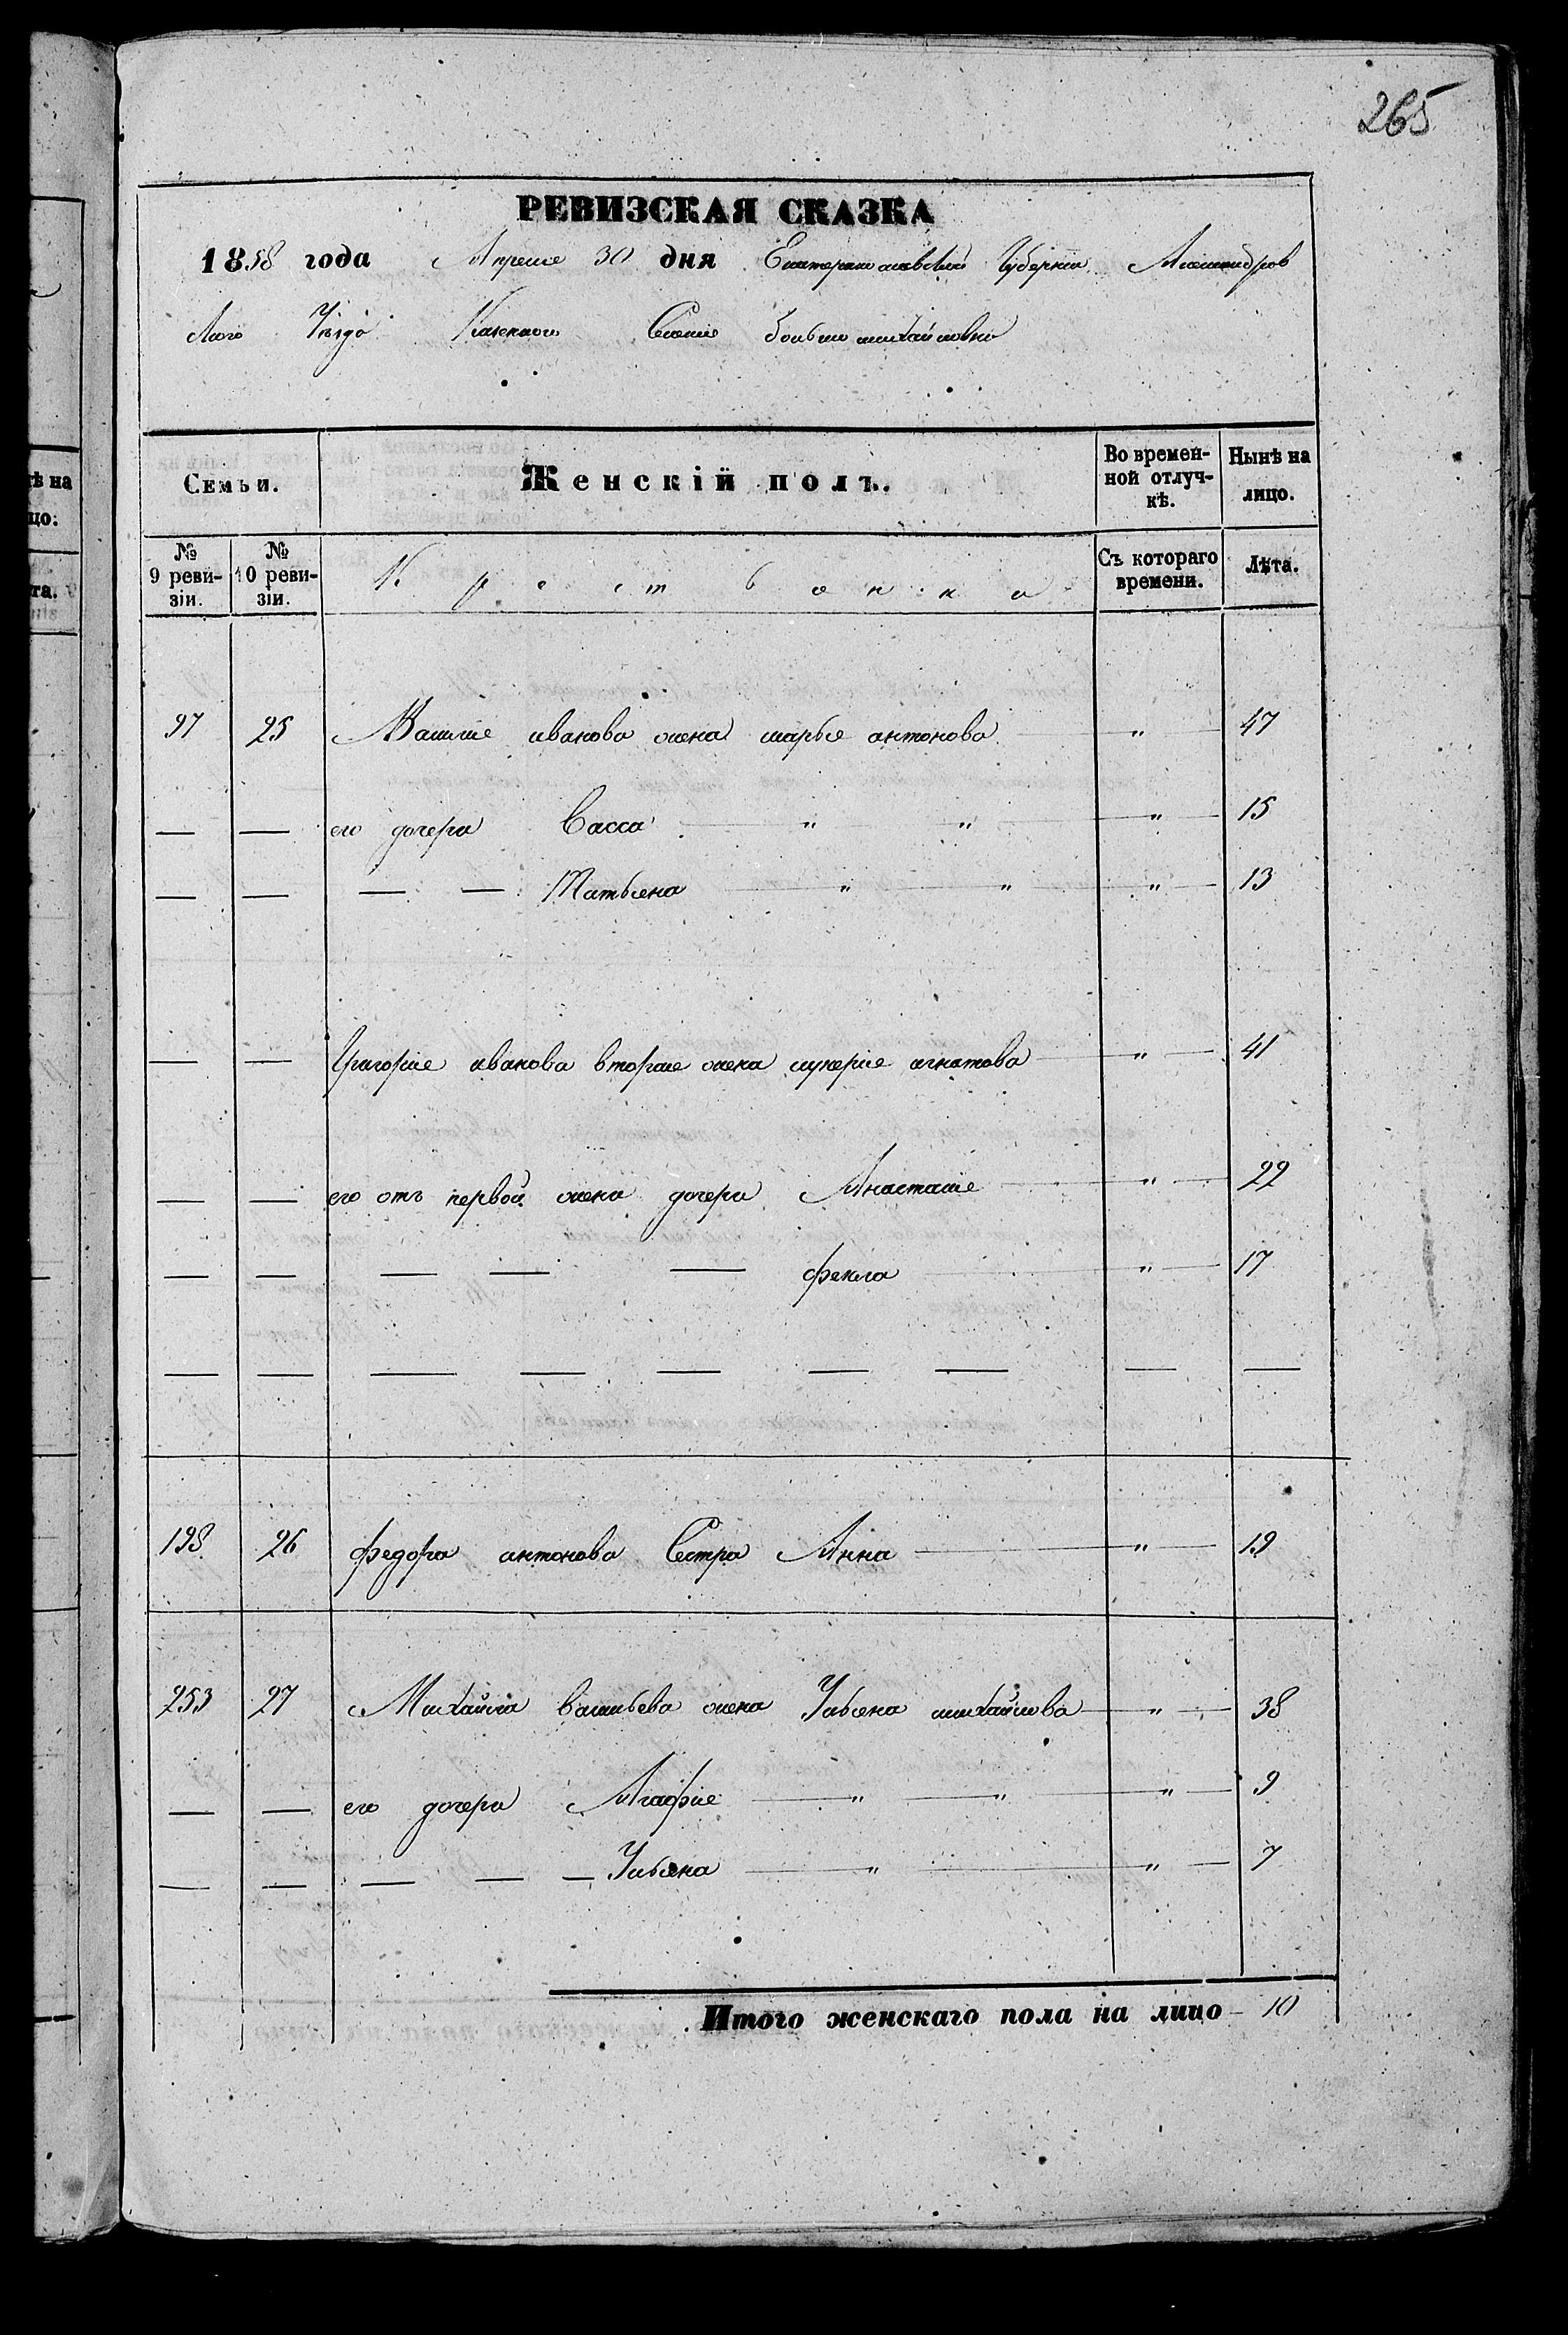 265
РЕВИЗСКАЯ СКАЗКА
1858 года Апреля 30 дня Екатеринославской Губернiи Александров
ского Уезда Казенного Селенiя больши михайловки
Семьи. Женскiй полъ. Во времен-ной отлуч-кѣ. Нынѣ на лицо.
№ 9 реви-зiи. № 10 реви-зiи. Крестьянки Съ котораго времени. Лѣта.
97 25 Василiя иванова жена марья антонова " 47
— — его дочери Васса " " " 15
— — — — Татьяна " " " 13
— — Григорiя иванова вторая жена лукерiя игнатова " 41
— — его отъ первой жены дочери Анастасiя " 22
— — — — — фекла " 17
— — — — — — — — —
198 26 федора антонова Сестра Анна " 19
253 27 Михайла васильева жена Ульяна михайлова " 38
— — его дочери Агафiя " " " 9
— — — — — Ульяна " " 7
Итого женскаго пола на лицо — 10
ѣ на
цо:
та.